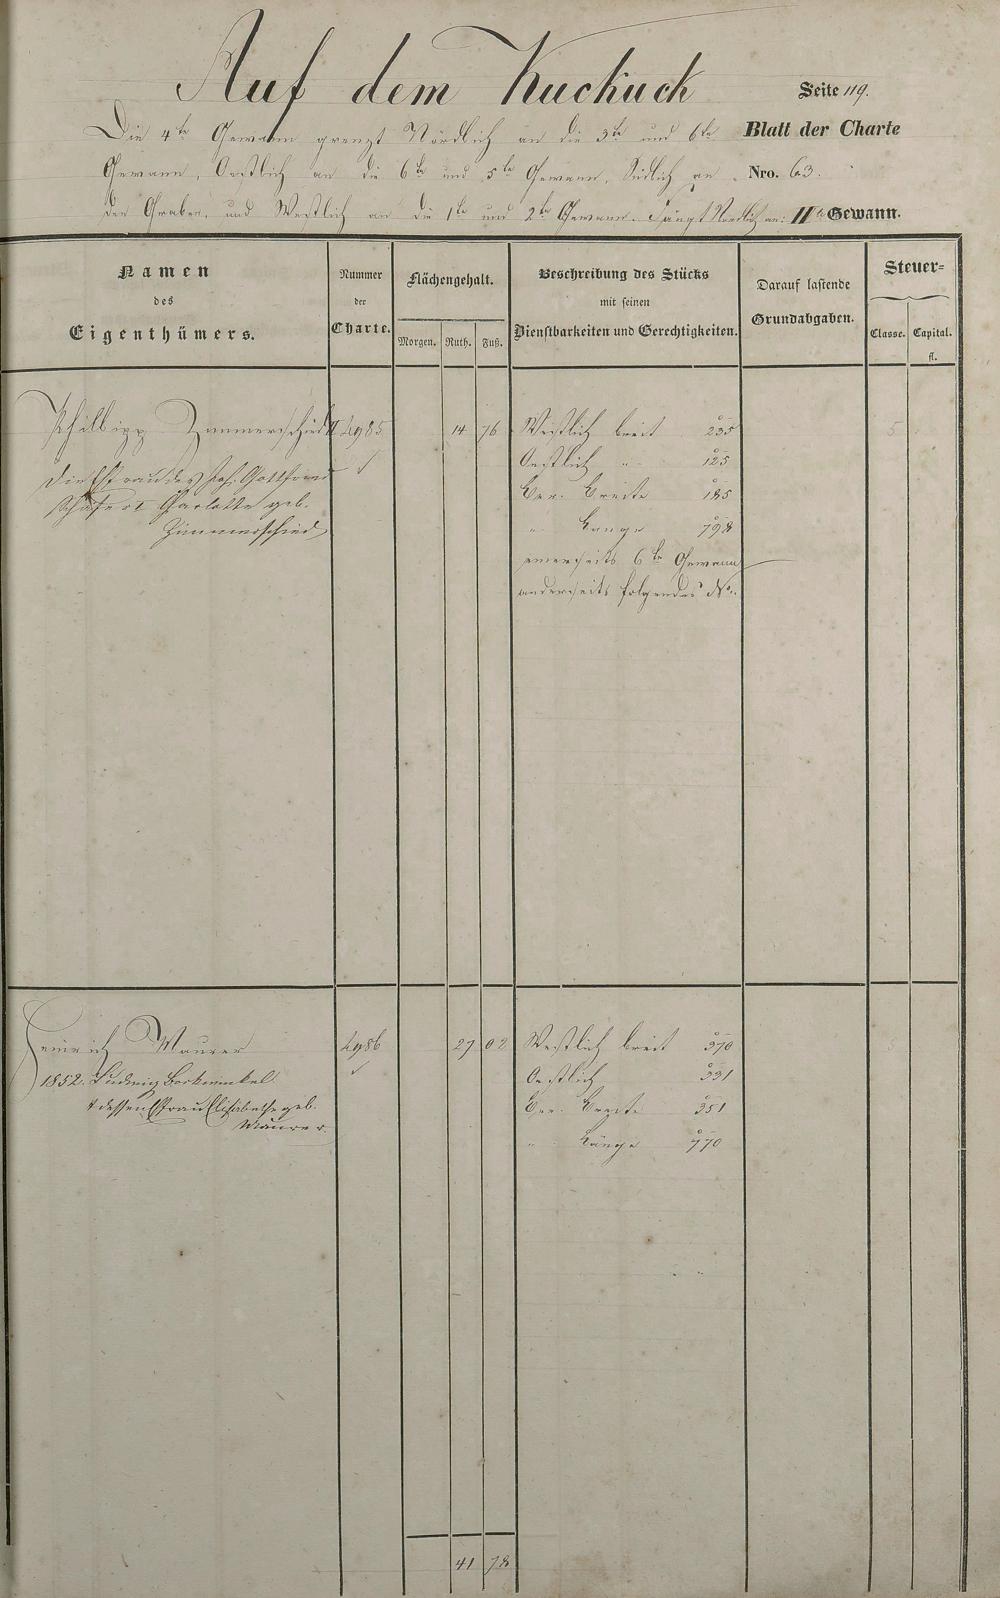 Auf dem Kuckuck
Seite 119.
Die 4te Gewann grenzt Nördlich an die 3te und 6te
Blatt der Charte
Gewann, Oestlich an die 6te und 5te Gewann, Südlich an
Nro. 63.
den Graben, und Westlich an die 1te und 2te Gewann. Fängt Nördlich an:
Gewann.
Namen
des
Eigenthümers.
Nummer
der
Charte.
Flächengehalt.
Morgen. Ruth. Fuß.
Beschreibung des Stücks
mit seinen
Dienstbarkeiten und Gerechtigkeiten.
Darauf lastende
Grundabgaben.
Steuer=
Classe. Capital.
fl.
Philipp Zimmerschied II 4985 14 76 Westlich breit 235 5
die Efrau des Joh. Gottfried
Schäfer I Charlotte geb.
Zimmerschied
Oestlich " 125
Ver. Breite 185
" Länge 798
einerseits 6te Gewann
anderseits folgendes No.
Heinrich Maurer 4986 27 02 Westlich breit 370
1852. Ludwig Bockwinkel
& dessen Efrau Elisabethe geb.
Maurer.
Oestlich 331
Ver. Breite 351
" Länge 770
41 78